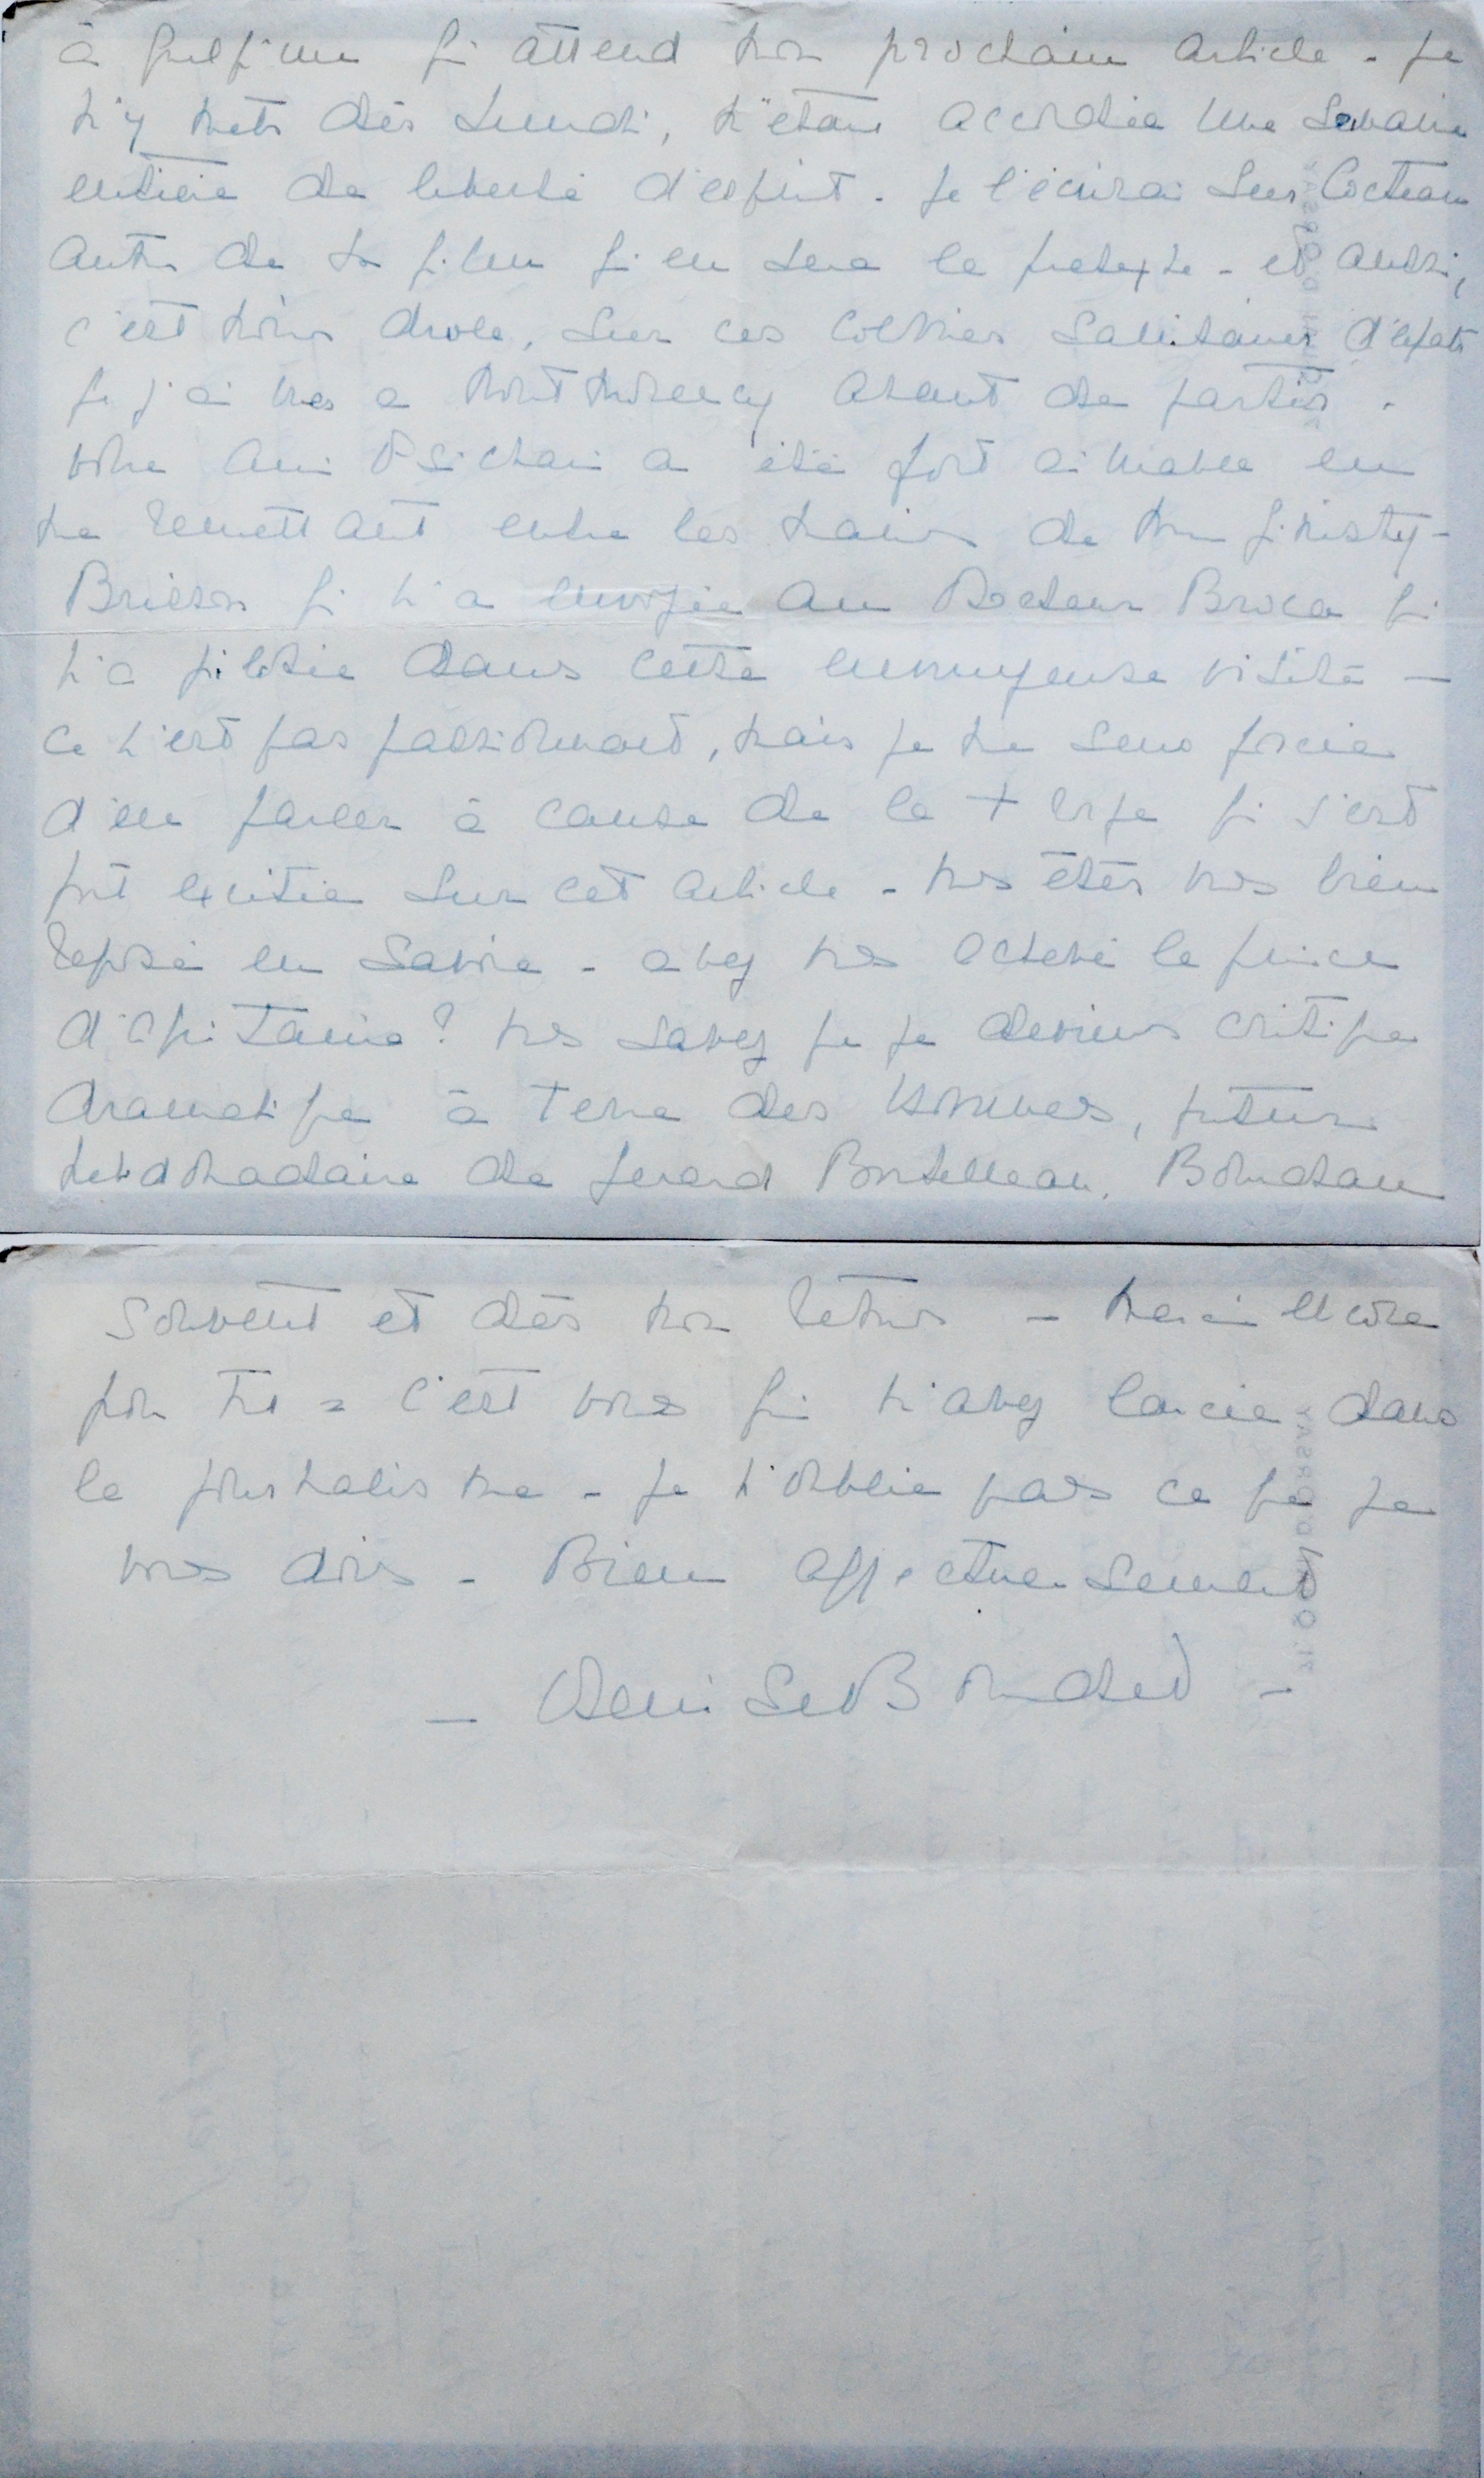 à quelqu'un qui attend mon prochain article - Je
m'y mets dès Lundi, m'étant accordée une Semaine
entière de liberté d'esprit. Je l'écrirai Sur Cocteau
autour de son film qui en sera le prétexte - et aussi,
c'est moins drôle, Sur ces Colonies Sanitaires d'enfants
que j'ai vues à Montmorency avant de partir.
votre ami Psichari a été fort aimable en
me remettant entre les mains de
Brisson qui m'a envoyée au Docteur Broca qui
m'a pilotée dans cette ennuyeuse visite -
Ce n'est pas passionnant, mais je me sens forcée
d'en parler à cause de la + rge qui s'est
fort excitée Sur cet article - vous êtes vous bien
reposé en Savoie - avez vous achevé le prince
d'aquitaine? vous savez que je deviens critique
dramatique à Terre des Hommes, futur
hebdomadaire de Gérard Boutelleau.
Souvent et dès mon retour - merci encore
pour tout - C'est vous qui m'avez lancée dans
le journalisme - Je n'oublie pas ce que je
vous dois - Bien affectueusement
- Denise Bourdet -